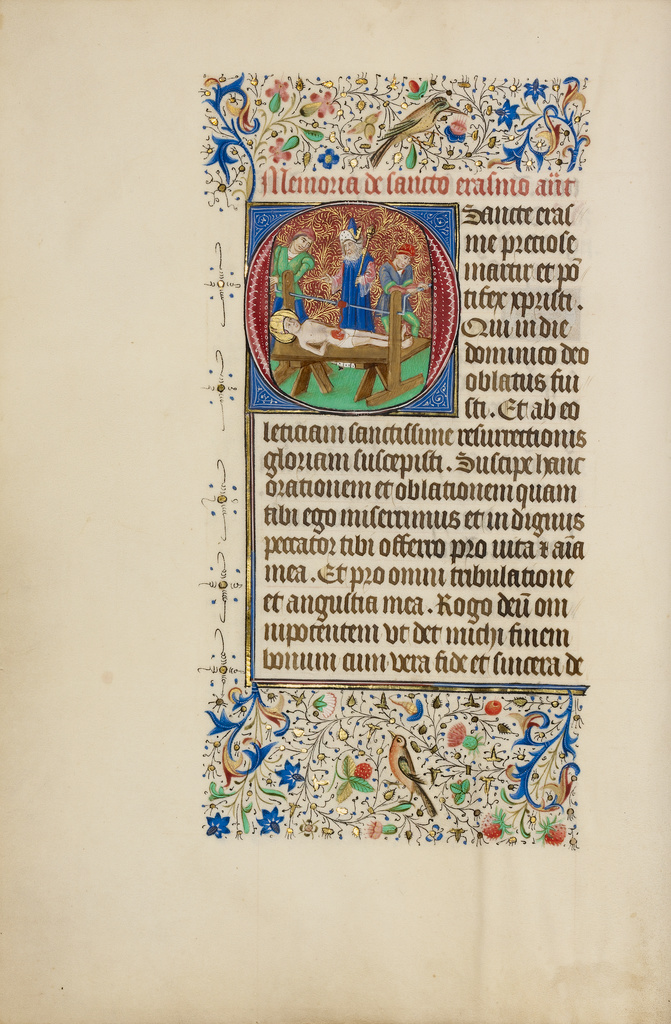 Memoria de sancto erasmo añt
Sancte eras
me preciose
martir et pō
tifex xpristi .
Qui in die
dominico deo
oblatus fui
sti . Et ab eo
leticiam sanctissime resurrectionis
gloriam suscepisti . Suscipe hanc
orationem et oblationem quam
tibi ego miserrimus et in dignus
peccator tibi offerro pro uita et aīa
mea . Et pro omni tribulatione
et angustia mea . Rogo deū om
nipotentem vt det michi finem
bonum cum vera fide et sincera de